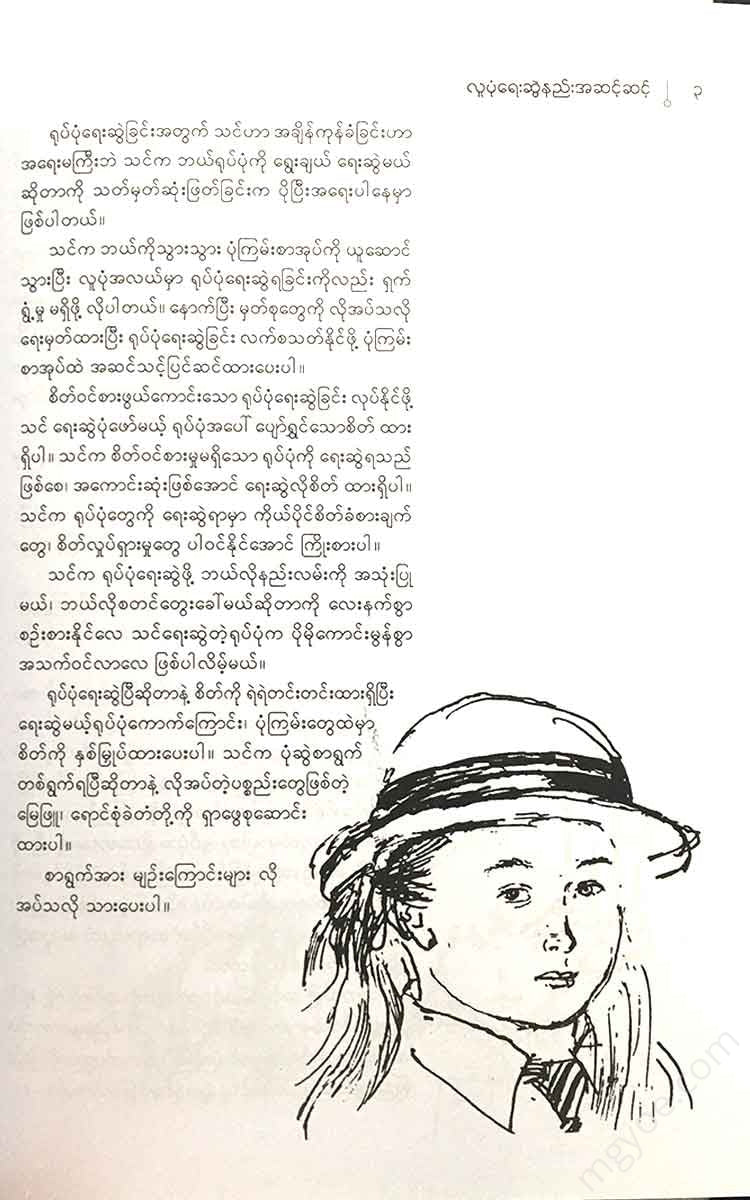 လူပုံရေးဆွဲနည်းအဆင့်ဆင့် ၃
ရုပ်ပုံရေးဆွဲခြင်းအတွက် သင်ဟာ အချိန်ကုန်ခံခြင်းဟာ
အရေးမကြီးဘဲ သင်က ဘယ်ရုပ်ပုံကို ရွေးချယ် ရေးဆွဲမယ်
ဆိုတာကို သတ်မှတ်ဆုံးဖြတ်ခြင်းက ပိုပြီးအရေးပါနေမှာ
ဖြစ်ပါတယ်။
သင်က ဘယ်ကိုသွားသွား ပုံကြမ်းစာအုပ်ကို ယူဆောင်
သွားပြီး လူပုံအလယ်မှာ ရုပ်ပုံရေးဆွဲရခြင်းကိုလည်း ရှက်
ရွံ့မှု မရှိဖို့ လိုပါတယ်။ နောက်ပြီး မှတ်စုတွေကို လိုအပ်သလို
ရေးမှတ်ထားပြီး ရုပ်ပုံရေးဆွဲခြင်း လက်စသတ်နိုင်ဖို့ ပုံကြမ်း
စာအုပ်ထဲ အဆင်သင့်ပြင်ဆင်ထားပေးပါ။
စိတ်ဝင်စားဖွယ်ကောင်းသော ရုပ်ပုံရေးဆွဲခြင်း လုပ်နိုင်ဖို့
သင် ရေးဆွဲပုံဖော်မယ့် ရုပ်ပုံအပေါ် ပျော်ရွှင်သောစိတ် ထား
ရှိပါ။ သင်က စိတ်ဝင်စားမှုမရှိသော ရုပ်ပုံကို ရေးဆွဲရသည်
ဖြစ်စေ၊ အကောင်းဆုံးဖြစ်အောင် ရေးဆွဲလိုစိတ် ထားရှိပါ။
သင်က ရုပ်ပုံတွေကို ရေးဆွဲရာမှာ ကိုယ်ပိုင်စိတ်ခံစားချက်
တွေ၊ စိတ်လှုပ်ရှားမှုတွေ ပါဝင်နိုင်အောင် ကြိုးစားပါ။
သင်က ရုပ်ပုံရေးဆွဲဖို့ ဘယ်လိုနည်းလမ်းကို အသုံးပြု
မယ်၊ ဘယ်လိုစတင်တွေးခေါ်မယ်ဆိုတာကို လေးနက်စွာ
စဉ်းစားနိုင်လေ သင်ရေးဆွဲတဲ့ရုပ်ပုံက ပိုမိုကောင်းမွန်စွာ
အသက်ဝင်လာလေ ဖြစ်ပါလိမ့်မယ်။
ရုပ်ပုံရေးဆွဲပြီဆိုတာနဲ့ စိတ်ကို ရဲရဲတင်းတင်းထားရှိပြီး
ရေးဆွဲမယ့်ရုပ်ပုံကောက်ကြောင်း၊ ပုံကြမ်းတွေထဲမှာ
စိတ်ကို နှစ်မြှုပ်ထားပေးပါ။ သင်က ပုံဆွဲစာရွက်
တစ်ရွက်ရပြီဆိုတာနဲ့ လိုအပ်တဲ့ပစ္စည်းတွေဖြစ်တဲ့
မြေဖြူ၊ ရောင်စုံခဲတံတို့ကို ရှာဖွေစုဆောင်း
ထားပါ။
စာရွက်အား မျဉ်းကြောင်းများ လို
အပ်သလို သားပေးပါ။
mgyoe.com